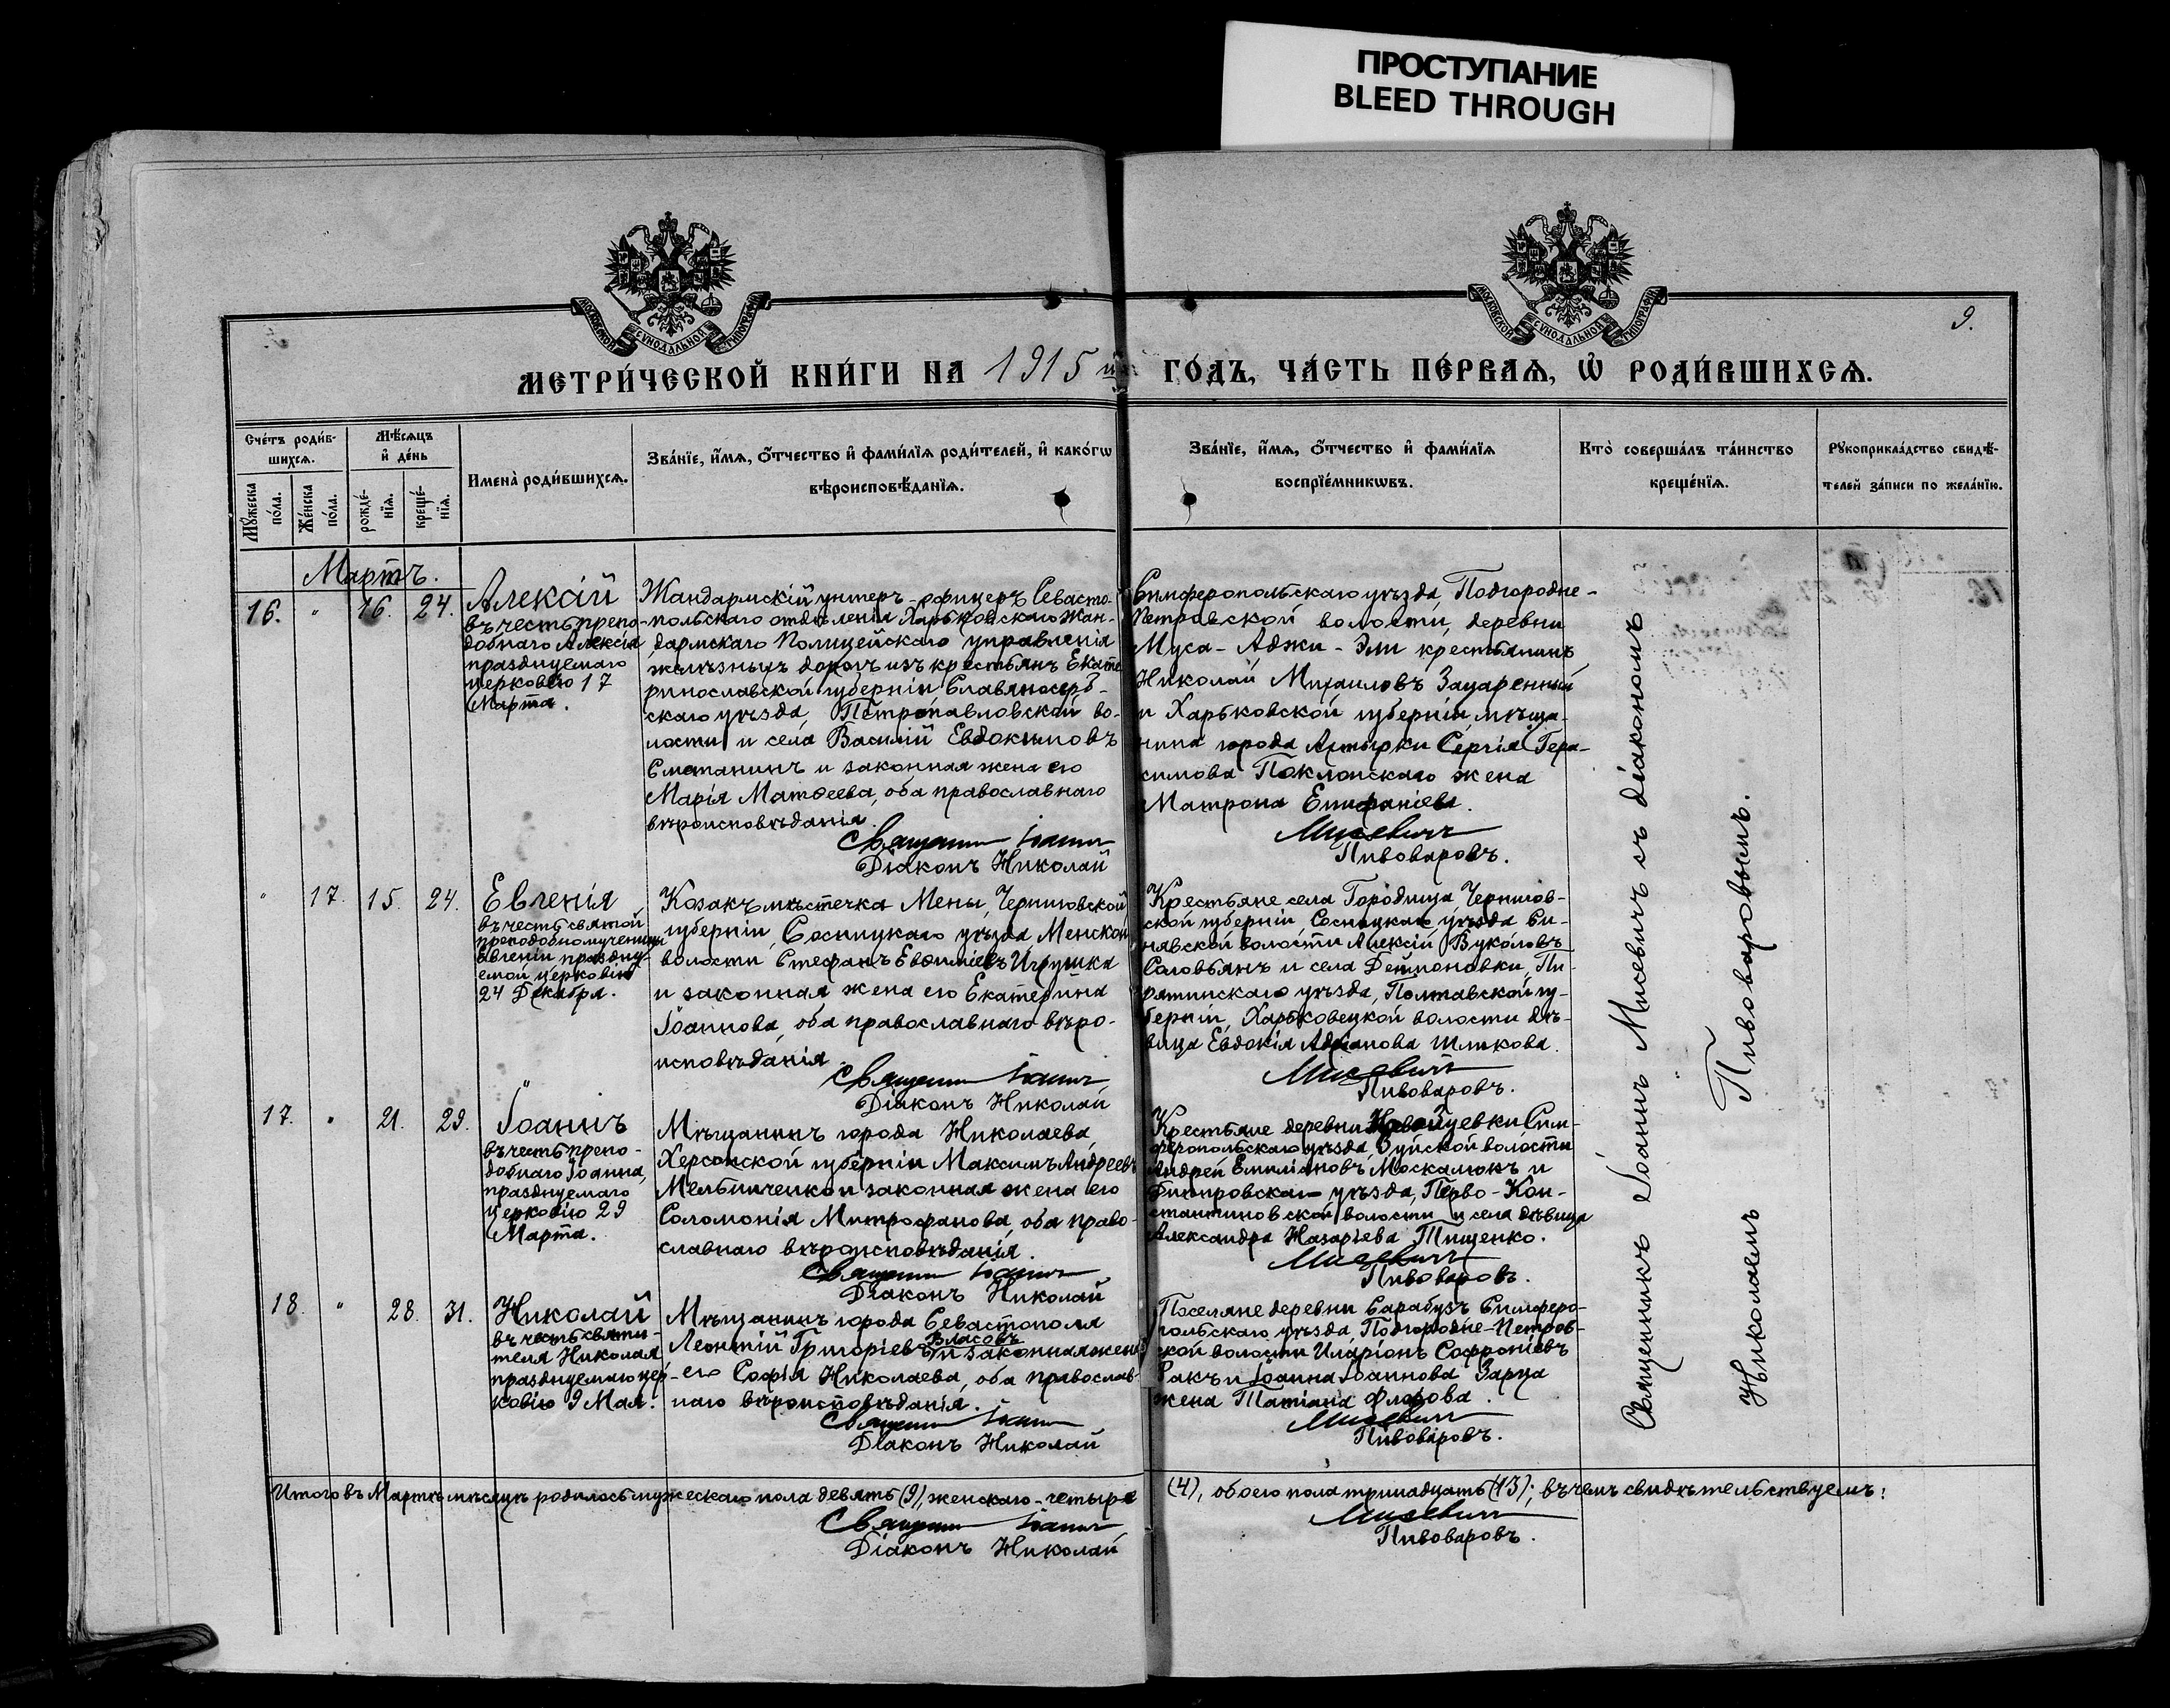 ПРОСТУПАНИЕ
BLEED THROUGH
МОСКОВСКОЙ СУНОДАЛЬНОЙ ТИПОГРАФІИ
МОСКОВСКОЙ СУНОДАЛЬНОЙ ТИПОГРАФІИ
9.
МЕТРИ́ЧЕСКОЙ КНИ́ГИ НА 1915 й ГО́ДЪ, ЧА́СТЬ ПЕ́РВАѦ, Ѡ РОДИ́ВШИХСѦ.
Сче́тъ роди́в-
шихсѧ.
Мѣ́сѧцъ
и҆ де́нь
Мꙋ́жеска
по́ла.
Же́нска
по́ла.
рожде́-
нїѧ.
креще́-
нїѧ.
Имена̀ роди́вшихсѧ.
Зва́нїе, и҆́мѧ, ѻ҆́тчество и҆ фами́лїѧ роди́телей, и҆ како́гѡ
вѣроисповѣ́данїѧ.
Зва́нїе, и҆́мѧ, ѻ҆́тчество и҆ фами́лїѧ
воспрїе́мникѡвъ.
Кто̀ соверша́лъ та́инство
креще́нїѧ.
Рꙋкоприкла́дство свидѣ́-
телей за́писи по жела́нїю.
Мартъ.
16. " 16. 24.
Алексій
въ честь препо-
добнаго Алексія
празднуемаго
церковію 17
Марта.
Жандармскій унтеръ-офицеръ Севасто-
польскаго отдѣленія Харьковскаго Жан-
дармскаго Полицейскаго управленія
желѣзныхъ дорогъ изъ крестьянъ Екате
ринославской губерніи Славяносерб-
скаго уѣзда, Петропавловской во-
лости и села Василій Евдокимовъ
Сметанинъ и законная жена его
Марія Матѳеева, оба православнаго
вѣроисповѣданія.
Священникъ Іоаннъ
Діаконъ Николай
Симферопольскаго уѣзда, Подгородне-
Петровской волости, деревни
Муса-Аджи-Эли крестьянинъ
Николай Михаиловъ Зацаренный
и Харьковской губерніи, мѣща-
нина города Ахтырки Сергія Гера-
симова Поклонскаго жена
Матрона Епифаніева.
Мисевичъ
Пивоваровъ.
" 17. 15. 24.
Евгенія
въ честь святой
преподобномученицы
Евгеніи праздну-
емой церковію
24 Декабря.
Козакъ мѣстечка Мены, Черниговской
губерніи, Сосницкаго уѣзда, Менской
волости Стефанъ Евѳиміевъ Игрушка
и законная жена его Екатерина
Іоаннова, оба православнаго вѣро-
исповѣданія.
Священникъ Іоаннъ
Діаконъ Николай
Крестьяне села Городища, Чернигов-
ской губерніи, Сосницкаго уѣзда Си-
нявской волости Алексій Вуколовъ
Соловьянъ и села Деймановки, Пи-
рятинскаго уѣзда, Полтавской гу-
берніи, Харьковецкой волости дѣ-
вица Евдокія Адріанова Шлыкова.
Мисевичъ
Пивоваровъ.
17. " 21. 29.
Іоаннъ
въ честь препо-
добнаго Іоанна,
празднуемаго
церковію 29
Марта.
Мѣщанинъ города Николаева,
Херсонской губерніи Максимъ Андреевъ
Мельниченко и законная жена его
Соломонія Митрофанова, оба право-
славнаго вѣроисповѣданія.
Священникъ Іоаннъ
Діаконъ Николай
Крестьяне деревни Сим-
феропольскаго уѣзда, Зуйской волости
Андрей Емиліановъ Москалюкъ и
Днѣпровскаго уѣзда, Перво-Кон-
стантиновской волости и села дѣвица
Александра Назаріева Тищенко.
Мисевичъ
Пивоваровъ.
18. " 28. 31.
Николай
въ честь святи-
теля Николая
празднуемаго цер-
ковію 9 Мая.
Мѣщанинъ города Севастополя
Леонтій Григоріевъ Власовъ и законная жена
его Софія Николаева, оба православ-
наго вѣроисповѣданія.
Священникъ Іоаннъ
Діаконъ Николай
Поселяне деревни Сарабузъ Симферо-
польскаго уѣзда, Подгородне-Петров-
ской волости Иларіонъ Софроніевъ
Ракъ и Іоанна Іоаннова Зарца
жена Татіана Флорова.
Мисевичъ
Пивоваровъ.
Священникъ Іоаннъ Мисевичъ съ діакономъ
Николаемъ Пивоваровымъ.
Итого въ Мартѣ мѣсяцѣ родилось мужескаго пола девять (9), женскаго - четыре (4), обоего пола тринадцать (13); въ чемъ свидѣтельствуемъ:
Священникъ Іоаннъ Мисевичъ
Діаконъ Николай Пивоваровъ.